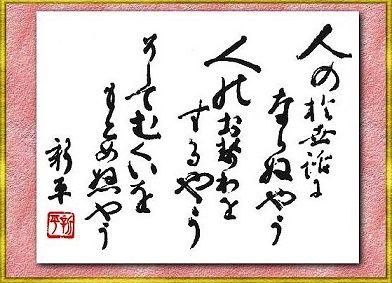 人の於世話に
ならぬやう
人のお勢わを
するやう
そしてむくいを
もとめぬやう
新平
新平